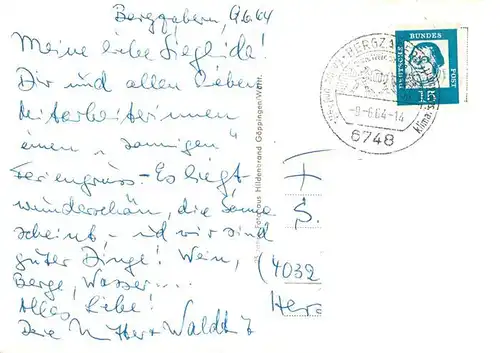 Bergzabern, 9.6.64
Meine liebe Sieglide!
Dir und allen lieben
Mitarbeiterinnen
einen „sonnigen"
Feriengruss - Es liegt
wunderschön, die Sonne
scheint, und wir sind
guter Dinge! Wein,
Berge, Wasser....
Alles Liebe!
Deine
DEUTSCHE BUNDES POST
15
BERGZABERN
-9-6.64-14
6748
Hildenbrand Göppingen/Württ.
S.
(4032
Her